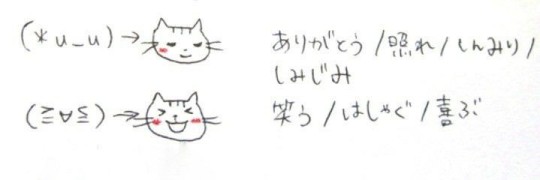 (*u_u)→ ありがとう/照れ/しんみり/
しみじみ
(≧∀≦)→ 笑う/はしゃぐ/喜ぶ